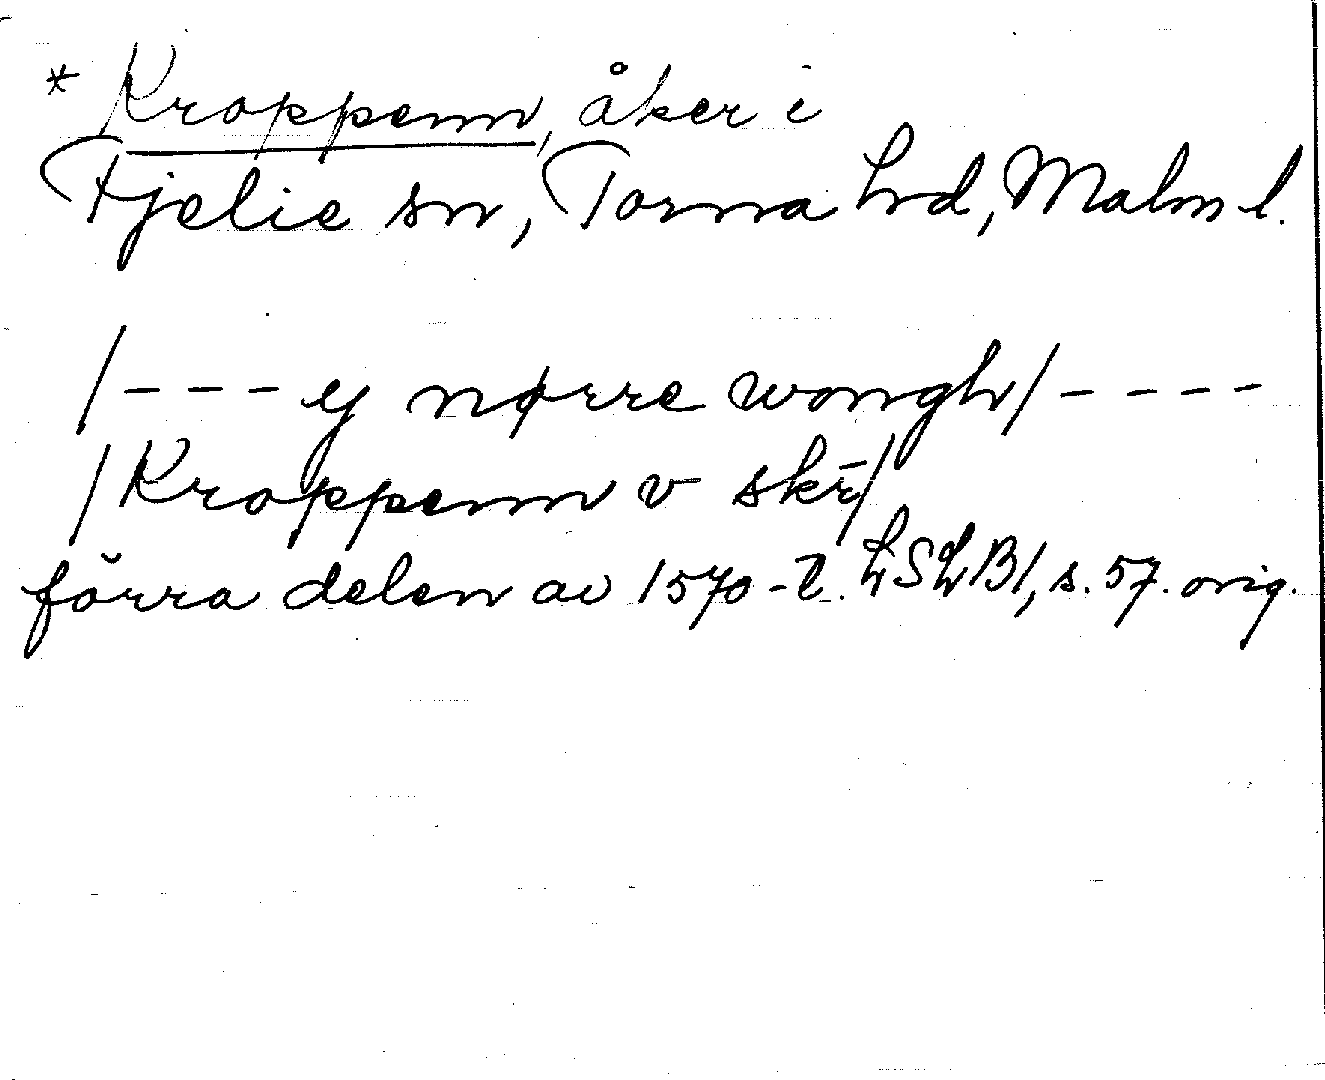 * Kroppenn, åker i
Fjelie sn, Torna hrd, Malm l.
/- - - y nørre wongh/ - - - -
/Kroppenn v skr̄/
förra delen av 1570-t. LSLB1, s. 57. orig.